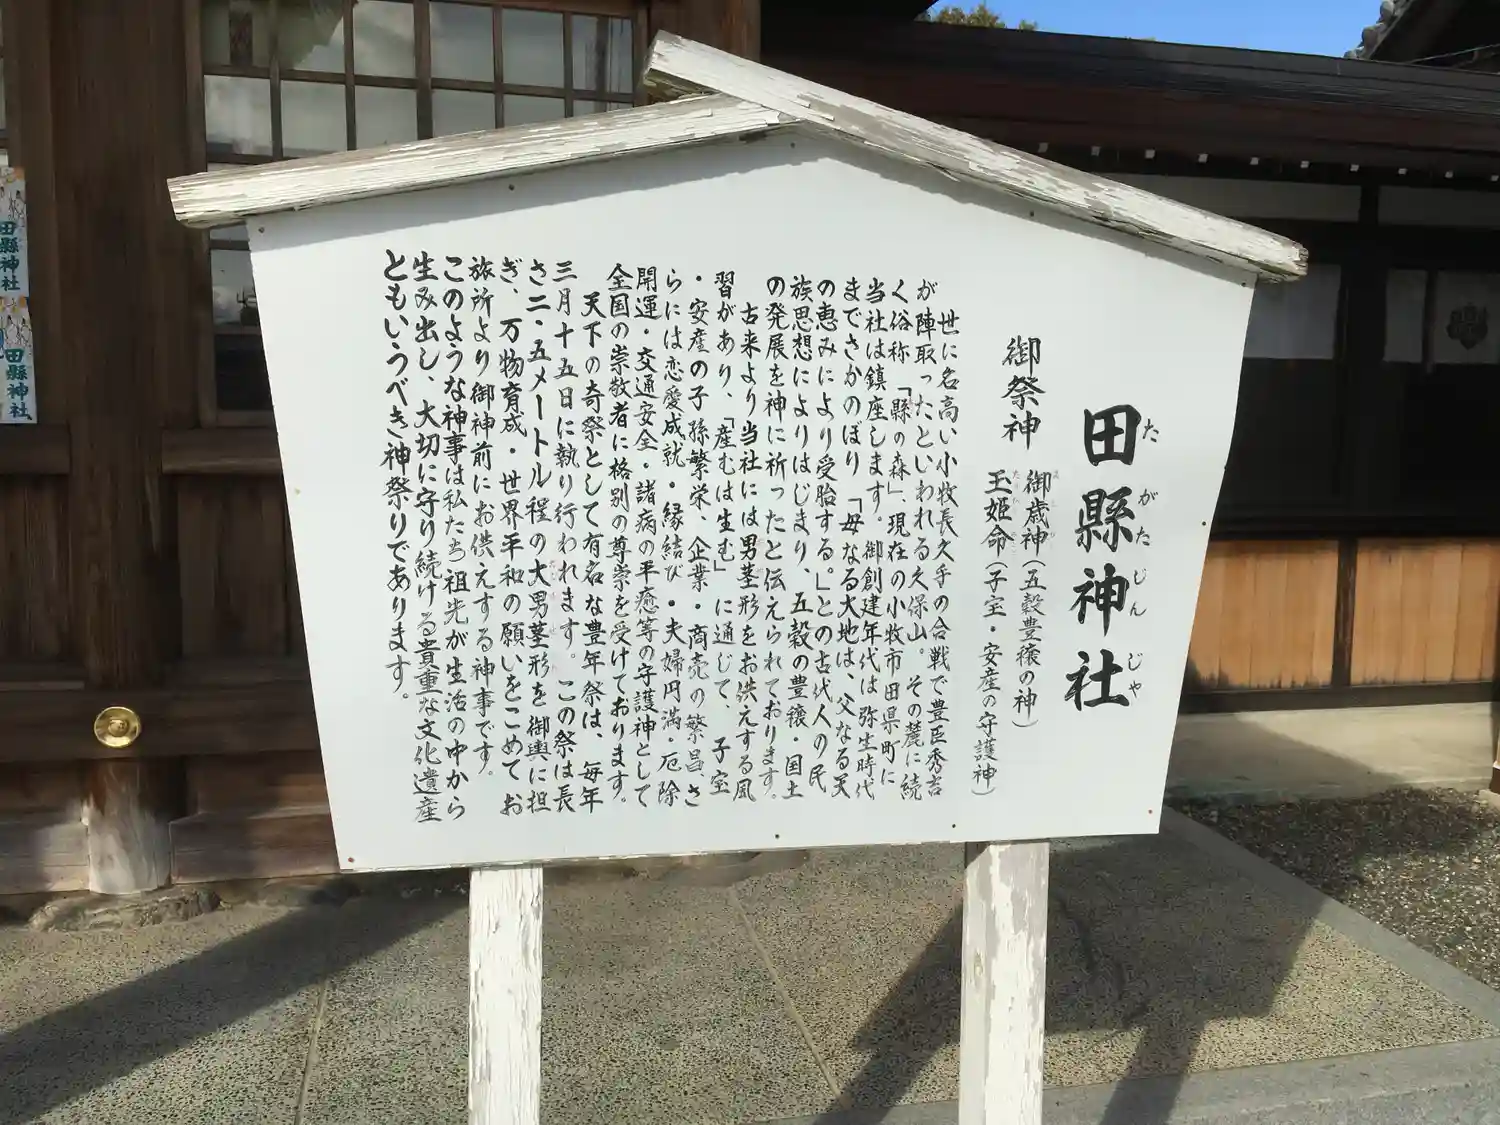 田縣神社
たがたじんじゃ
御祭神
御歳神(五穀豊穣の神)
玉姫命(子宝・安産の守護神)
世に名高い小牧長久手の合戦で豊臣秀吉
が陣取ったといわれる久保山。その麓に続
く俗称「縣の森」、現在の小牧市田県町に
当社は鎮座します。御創建年代は弥生時代
までさかのぼり「母なる大地は、父なる天
の恵みにより受胎する。」との古代人の民
族思想によりはじまり、五穀の豊穣・国土
の発展を神に祈ったと伝えられております。
古来より当社には男茎形をお供えする風
習があり、「産むは生む」に通じて、子宝
・安産の子孫繁栄、企業・商売の繁昌、さ
らには恋愛成就・縁結び・夫婦円満・厄除
開運・交通安全・諸病の平癒等の守護神として
全国の崇敬者に格別の尊崇を受けております。
天下の奇祭として有名な豊年祭は、毎年
三月十五日に執り行われます。この祭は長
さ二・五メートル程の大男茎形を御輿に担
ぎ、万物育成・世界平和の願いをこめてお
旅所より御神前にお供えする神事です。
このような神事は私たち祖先が生活の中から
生み出し、大切に守り続ける貴重な文化遺産
ともいうべき神祭りであります。
田縣神社
田縣神社